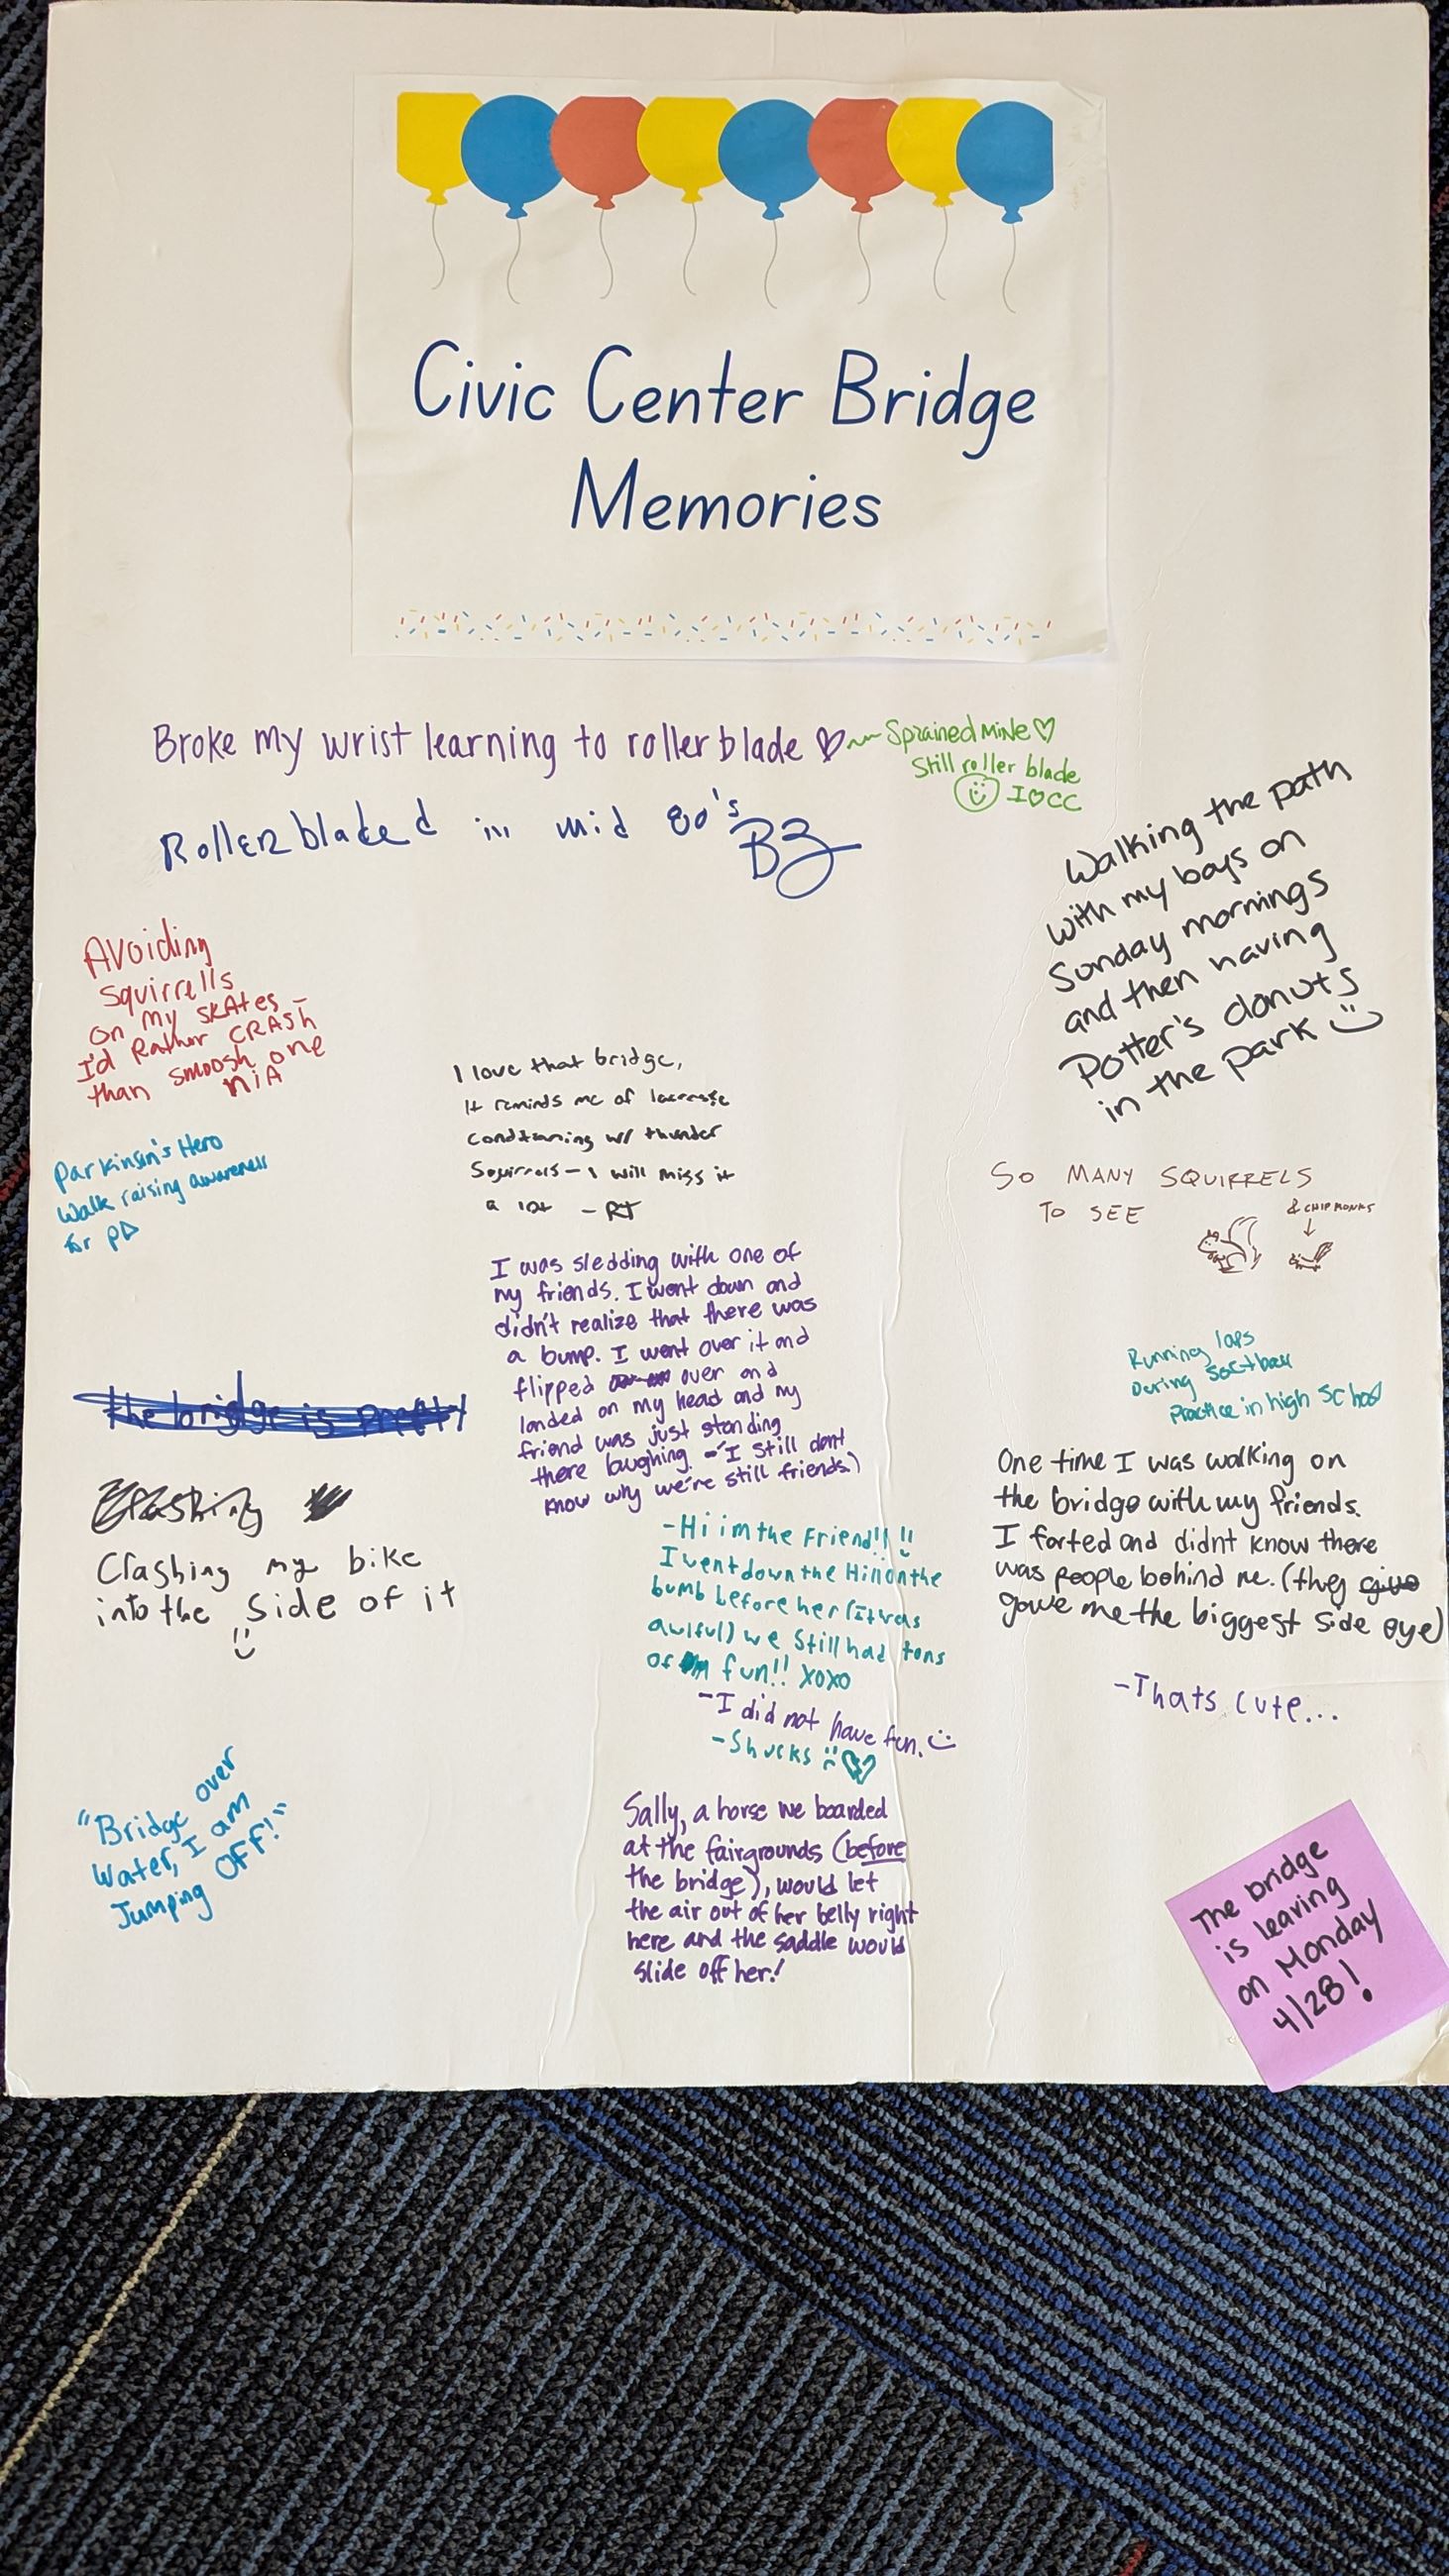 Civic Center Bridge
Memories
Broke my wrist learning to rollerblade
Sprained MiNe
Still roller blade
I ♡ CC
Rollerbladed in mid 80's
BZ
Walking the path
with my boys on
Sunday mornings
and then having
Potter's donuts
in the park
Avoiding
squirrells
on my skates -
I'd Rather CRASh
than smoosh one
NiA
I love that bridge,
It reminds me of lacrosse
conditioning w/ thunder
Squirrels - I will miss it
a lot - RT
Parkinson's Hero
Walk raising awareness
for PD
SO MANY SQUIRRELS
TO SEE
& CHIPMONKS
I was sledding with one of
my friends. I went down and
didn't realize that there was
a bump. I went over it and
flipped over and
landed on my head and my
friend was just standing
there laughing. - I still dont
know why we're still friends.)
Running laps
During Softball
Practice in high School
the bridge is pretty
Crashing
Crashing my bike
into the side of it
One time I was walking on
the bridge with my friends.
I farted and didnt know there
was people behind me. (they give
gave me the biggest side eye)
-Thats cute...
-Hi im the Friend!!
I went down the Hill on the
bumb before her (It was
awlful) we Still had tons
of fun!! xoxo
-I did not have fun.
-Shucks
"Bridge over
Water, I am
Jumping OFF!"
Sally, a horse we boarded
at the fairgrounds (before
the bridge), would let
the air out of her belly right
here and the saddle would
slide off her!
The bridge
is leaving
on Monday
4/28!